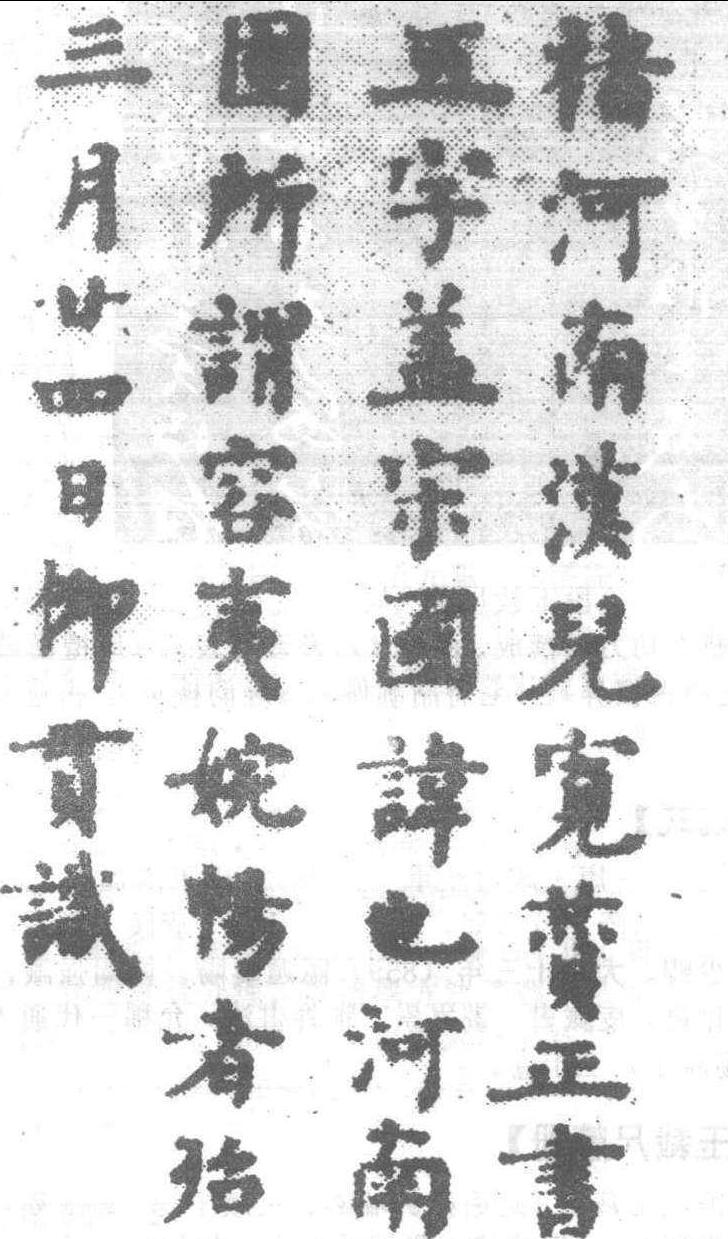 褚河南漢兒寬贊正書
五字盖宋國諱也河南
固所謂容夷婉暢者殆
三月廿四日柳貫識